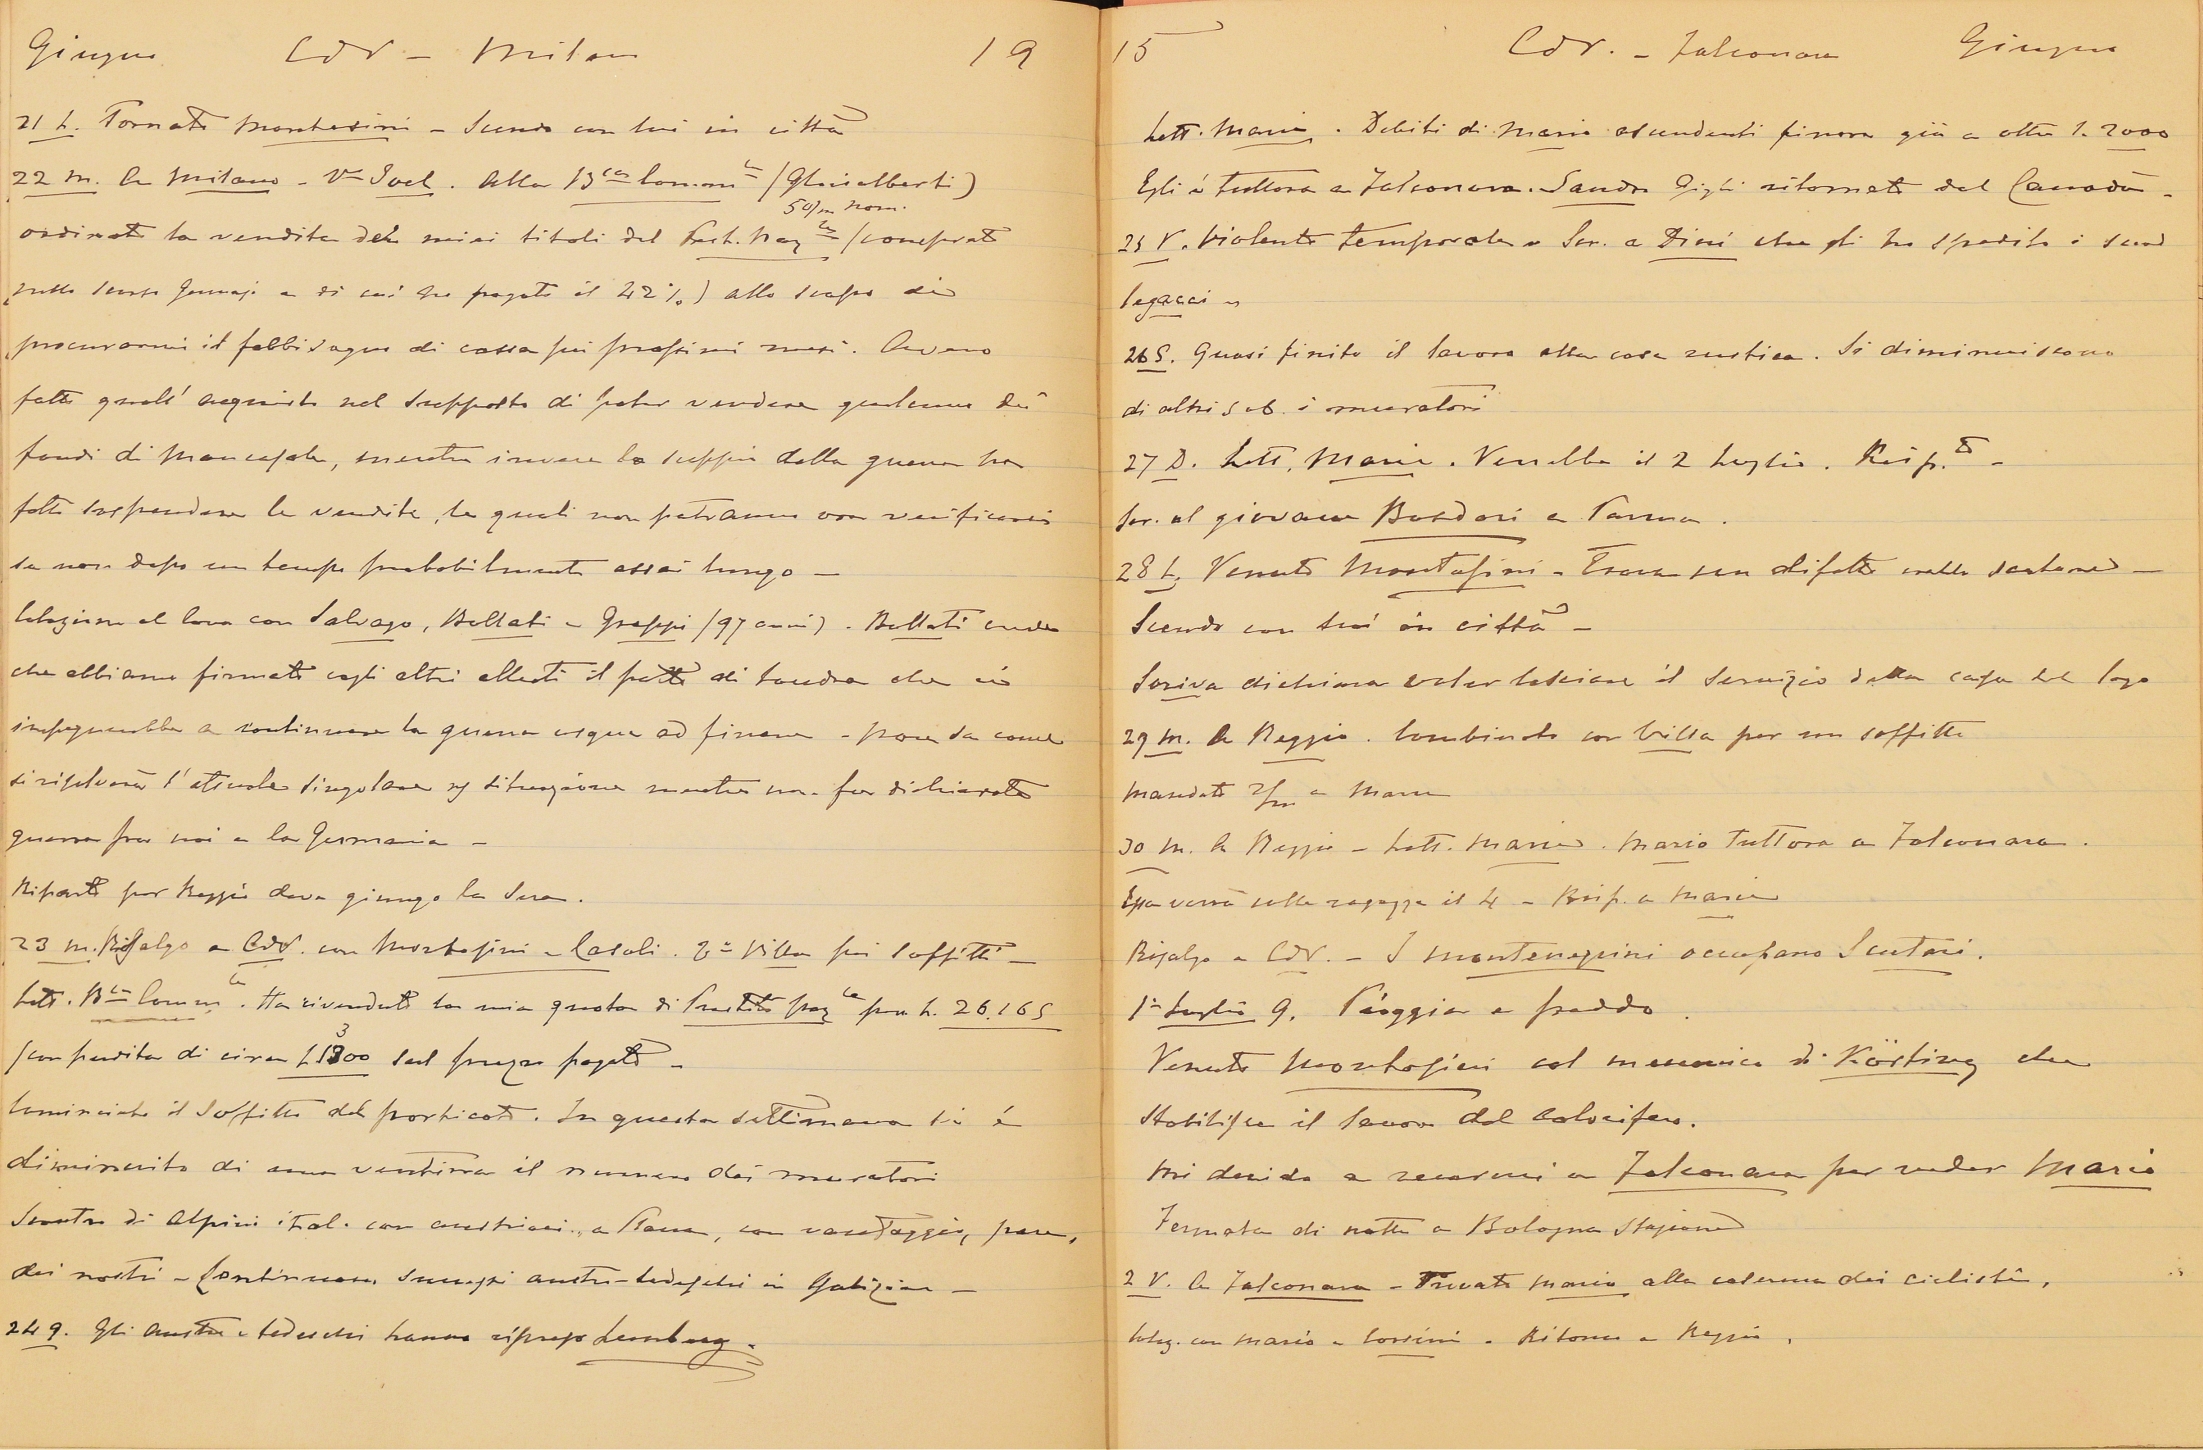 Giugno CdV – Milano 19
21 L. Tornato Montesini – Scendo con lui in città
22 M. A Milano – Va Joel. Alla Bca Commle (Ghisalberti)
50/m nom.
ordinato la vendita dei miei titoli del Prest. Nazle (comprato
nello scorso Gennajo e di cui ho pagato il 42%) allo scopo di
procurarmi il fabbisogno di cassa pei prossimi mesi. Avevo
fatto quell'acquisto nel supposto di poter vendere qualcuno dei
fondi di Mancasale, mentre invece lo scoppio della guerra ha
fatto sospendere le vendite, le quali non potranno ora verificarsi
se non dopo un tempo probabilmente assai lungo –
Colazione al Cova con Salvago, Bellati e Greppi (97 anni). Bellati crede
che abbiamo firmato cogli altri alleati il patto di Londra che ci
impegnerebbe a continuare la guerra seguire ad finem – non so come
si risolverà l'attuale singolare situazione mentre non fu dichiarata
guerra fra noi e la Germania –
Riparto per Reggio dove giungo la sera.
23 M. Risalgo a CdV. con Montesini e Casoli. Villa pei soffitti –
Lett. Bca Commle. Ha rivenduto la mia quota di Prestito Nazle per L. 26.165
(con perdita di circa L 1300 sul prezzo pagato –
Cominciato il soffitto del porticato. In questa settimana si è
diminuito di una ventina il numero dei muratori
Scontro di Alpini ital. con austriaci a Plava, con vantaggio, pare,
dei nostri – Continuano successi austro-tedeschi in Galizia –
24 G. Gli Austro-tedeschi hanno ripreso Lemberg.
15 CdV. – Falconara Giugno
Lett. Maria. Debiti di Mario ascendenti finora già a oltre L. 2000
Egli è tuttora a Falconara. Sandro Gigli ritornato dal Canadà –
25 V. Violento temporale – Scr. a Dini che gli ho spedito i suoi
legacci –
26 S. Quasi finito il lavoro alla casa rustica. Si diminuiscono
di altri sei i muratori
27 D. Lett. Maria. Verrebbe il 2 Luglio. Risp.to –
Scr. al giovane Bondoni a Parma.
28 L. Venuto Montesini – Trova un difetto nello scalone –
Scendo con lui in città –
Soriva dichiara voler lasciare il servizio della casa del lago
29 M. A Reggio. Combinato con Villa per un soffitto
Mandato 2/m a Maria
30 M. A Reggio – Lett. Maria. Mario tuttora a Falconara.
Essa verrà colle ragazze il 4 – Risp. a Maria
Risalgo a CdV. – I montenegrini occupano Scutari.
1° Luglio G. Pioggia e freddo.
Venuto Montesini col meccanico di Körting che
stabilisce il lavoro del calorifero.
Mi decido a recarmi a Falconara per veder Mario
Fermata di notte a Bologna stazione
2 V. A Falconara – Trovato Mario alla caserma dei ciclisti.
Colaz. con Mario e Corsini. Ritorno a Reggio.